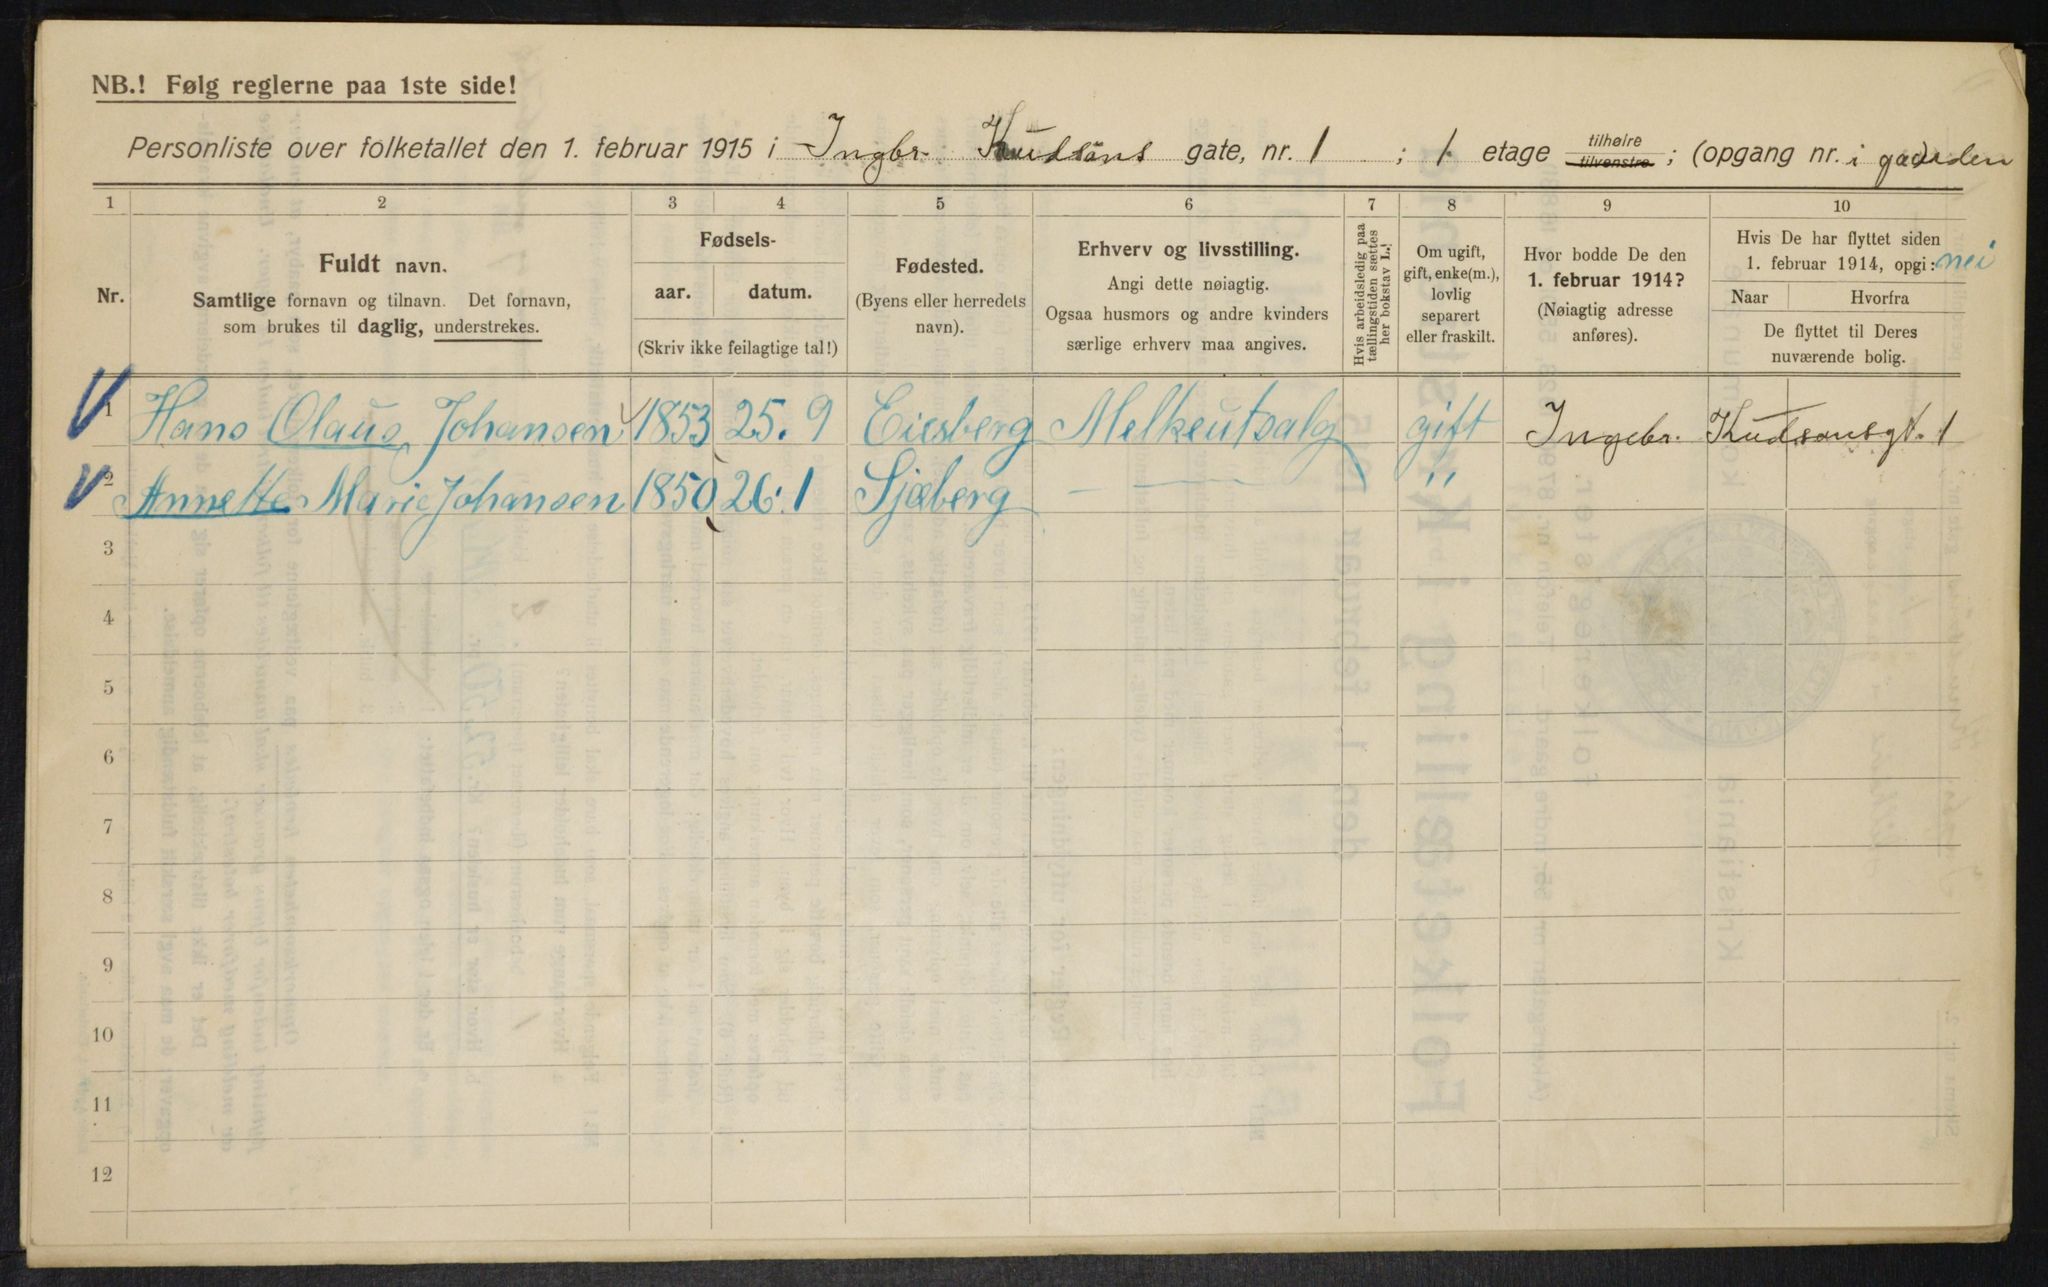 NB.! Følg reglerne paa 1ste side!
Personliste over folketallet den 1. februar 1915 i Ingbr. Knudsöns gate, nr. 1 ; 1 etage tilhøire tilvenstre ; (opgang nr. i gaarden
1 2 3 4 5 6 7 8 9 10
Nr.
Fuldt navn.
Samtlige fornavn og tilnavn. Det fornavn,
som brukes til daglig, understrekes.
Fødsels-
aar. datum.
(Skriv ikke feilagtige tal!)
Fødested.
(Byens eller herredets
navn).
Erhverv og livsstilling.
Angi dette nøiagtig.
Ogsaa husmors og andre kvinders
særlige erhverv maa angives.
Hvis arbeidsledig paa
tællingstiden sættes
her bokstav L.!
Om ugift,
gift, enke(m.),
lovlig
separert
eller fraskilt.
Hvor bodde De den
1. februar 1914?
(Nøiagtig adresse
anføres).
Hvis De har flyttet siden
1. februar 1914, opgi: nei
Naar Hvorfra
De flyttet til Deres
nuværende bolig.
1 Hans Olaus Johansen 1853 25. 9 Eidsberg Melkeutsalg gift Ingebr. Knudsonsgt. 1
2 Annette Marie Johansen 1850 26. 1 — — "
3
4
5
6
7
8
9
10
11
12